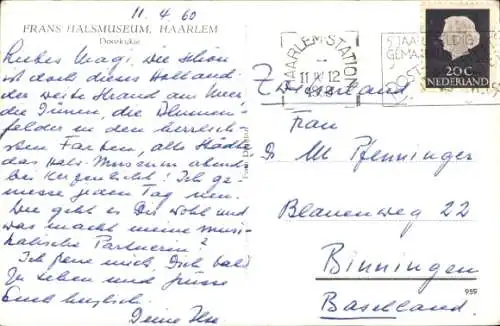 11. 4. 60
FRANS HALSMUSEUM, HAARLEM
Doorkijkje
Liebes Magi. Wie schön
ist doch dieses Holland:
der weite Strand am Meer,
die Dünen, die Blumen-
felder in den herrlich-
sten Farben, alte Städte
das Hals-Museum abends
bei Kerzenlicht! Ich ge-
niesse jeden Tag neu.
Wie geht es Dir wohl und
was macht meine musi-
kalische Partnerin?
Ich freue mich, Dich bald
zu sehen und grüsse
Euch herzlich.
Deine Ilse
HAARLEM-STATION
11 IV 12
NEDERLAND
20 C
Frau
Dr M Pfenninger
Blauenweg 22
Binningen
Baselland.
959